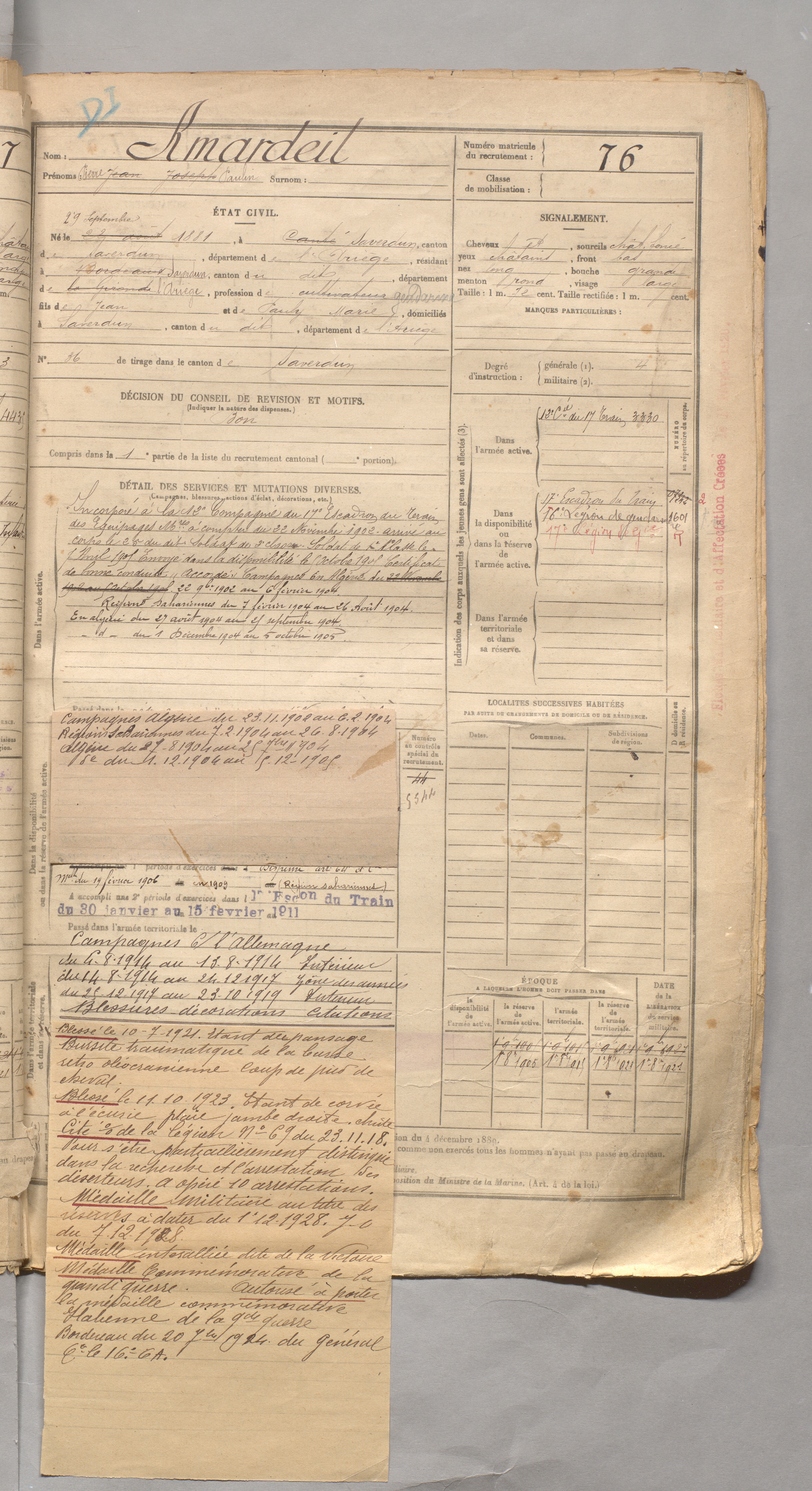 Nom : Amardeil
Prénoms Jean Joseph Paulin Surnom :
Numéro matricule du recrutement : 76
Classe de mobilisation :
ÉTAT CIVIL.
29 Septembre
Né le août 1881, à Canté Saverdun, canton
de Saverdun, département de l'Ariège, résidant
à Bordeaux Saverdun, canton du dit, département
de la Gironde Ariège, profession de cultivateur gendarme
fils de Jean et de Pauly Marie, domiciliés
à Saverdun, canton du dit, département de l'Ariège
N° 36 de tirage dans le canton de Saverdun
SIGNALEMENT.
Cheveux, sourcils châtains
yeux châtains, front bas
nez long, bouche grande
menton rond, visage large
Taille : 1 m. 72 cent. Taille rectifiée : 1 m. 7 cent.
MARQUES PARTICULIÈRES :
Degré d'instruction : générale (1). 4
militaire (2).
DÉCISION DU CONSEIL DE REVISION ET MOTIFS.
(Indiquer la nature des dispenses.)
Bon
Compris dans la 1e partie de la liste du recrutement cantonal ( e portion).
DÉTAIL DES SERVICES ET MUTATIONS DIVERSES.
(Campagnes, blessures, actions d'éclat, décorations, etc.)
Incorporé à la 13e Compagnie du 17e Escadron du Train
des Équipages Mres à compter du 22 Novembre 1902 arrivé au
corps le 26 du dit Soldat de 2e classe Soldat de 1e Classe le
1 Avril 1905 Envoyé dans la disponibilité le Octobre 1905 Certificat
de bonne conduite "Accordé" Campagnes En Algérie du
22 9bre 1902 au 6 février 1904
Régions Sahariennes du 7 février 1904 au 26 Août 1904
En algérie du 27 août 1904 au 25 septembre 1904
- d - du 1 Décembre 1904 au 5 octobre 1905
Indication des corps auxquels les jeunes gens sont affectés (3).
NUMÉRO au répertoire du corps.
Dans l'armée active.
13e Cie du 17 Train 3330
Dans la disponibilité ou dans la réserve de l'armée active.
17e Escadron du Train
17e Légion de Gie
Dans l'armée territoriale et dans sa réserve.
Dans l'armée active.
Campagnes Algérie du 23.11.1902 au 6.2.1904
Régions Sahariennes du 7.2.1904 au 26.8.1904
Algérie du 27.8.1904 au 25 7bre 1904
De du 1.12.1904 au 5.12.1905
Numéro au contrôle spécial du recrutement.
44
5344
LOCALITÉS SUCCESSIVES HABITÉES
PAR SUITE DE CHANGEMENTS DE DOMICILE OU DE RÉSIDENCE.
Dates.
Communes.
Subdivisions de région.
D domicile ou R résidence.
Dans la disponibilité ou dans la réserve de l'armée active.
du 19 février 1906 en 1909 (Régions sahariennes)
A accompli une 2e période d'exercices dans l 17e Escon du Train
du 30 janvier au 15 février 1911
Passé dans l'armée territoriale le
Campagnes C/ l'Allemagne
du 6.8.1914 au 13.8.1914 Intérieur
du 14.8.1914 au 24.12.1917 Zône des armées
du 25.12.1917 au 23.10.1919 Intérieur
Blessures décorations Citations
Blessé le 10-7.1921. Étant de pansage
Bursite traumatique de la bourse
retro olécranienne coup de pied de
cheval.
Blessé le 11.10.1923. Étant de corvée
à l'écurie, plaie jambe droite. chute
Cité O de la Légion N° 69 du 23.11.18.
Pour s'être particulièrement distingué
dans la recherche et l'arrestation des
déserteurs. a opéré 10 arrestations.
Médaille militaire au titre des
réserves à dater du 1er 12.1928. J O
du 7.12.1928
Médaille interalliée dite de la victoire
Médaille Commémorative de la
grande guerre. Autorisé à porter
la médaille commémorative
Italienne de la gde guerre
Bordereau du 20 7bre 1924 du général
Ct le 16e CA.
ÉPOQUE
A LAQUELLE L'HOMME DOIT PASSER DANS
la disponibilité de l'armée active.
la réserve de l'armée active.
l'armée territoriale.
la réserve de l'armée territoriale.
DATE de la LIBÉRATION du service militaire.
ion du 4 décembre 1889.
comme non exercés tous les hommes n'ayant pas passé au drapeau.
position du Ministre de la Marine. (Art. 4 de la loi.)